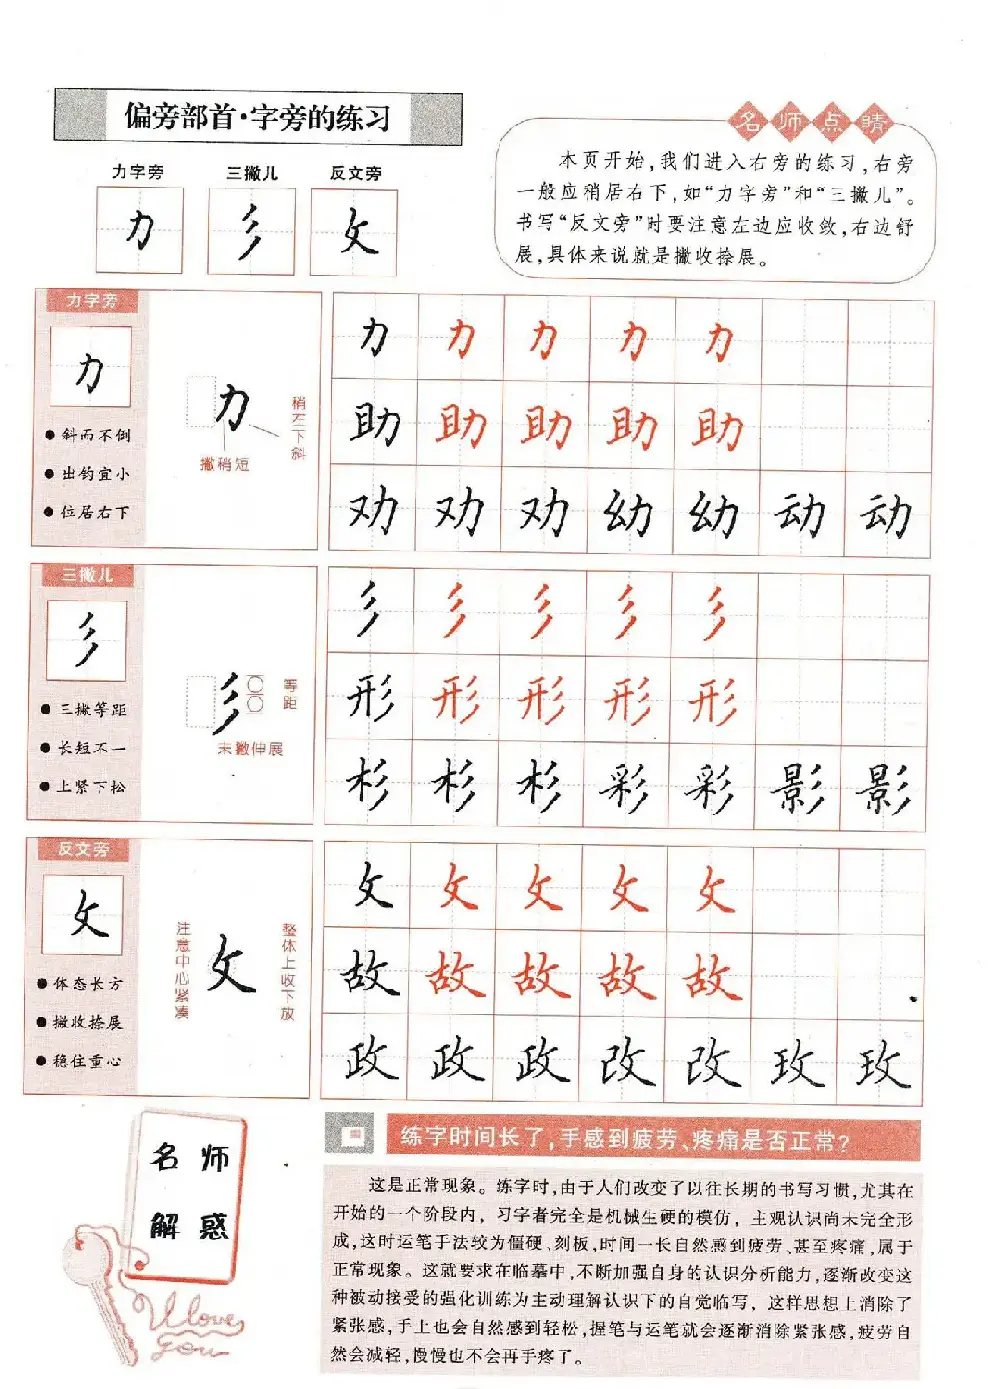 偏旁部首·字旁的练习
名师点睛
本页开始,我们进入右旁的练习,右旁
一般应稍居右下,如“力字旁”和“三撇儿”。
书写“反文旁”时要注意左边应收敛,右边舒
展,具体来说就是撇收捺展。
力字旁 三撇儿 反文旁
力 彡 攵
力字旁
力
●斜而不倒
●出钩宜小
●位居右下
力
撇稍短
稍左下斜
力 力 力 力 力
助 助 助 助 助
劝 劝 劝 幼 幼 动 动
三撇儿
彡
●三撇等距
●长短不一
●上紧下松
彡
等距
末撇伸展
彡 彡 彡 彡 彡
形 形 形 形 形
杉 杉 杉 彩 彩 影 影
反文旁
攵
●体态长方
●撇收捺展
●稳住重心
注意中心紧凑
攵
整体上收下放
攵 攵 攵 攵 攵
故 故 故 故 故
政 政 政 改 改 玫 玫
名师
解惑
I love
you
练字时间长了,手感到疲劳、疼痛是否正常?
这是正常现象。练字时,由于人们改变了以往长期的书写习惯,尤其在
开始的一个阶段内，习字者完全是机械生硬的模仿，主观认识尚未完全形
成,这时运笔手法较为僵硬、刻板,时间一长自然感到疲劳、甚至疼痛,属于
正常现象。这就要求在临摹中,不断加强自身的认识分析能力,逐渐改变这
种被动接受的强化训练为主动理解认识下的自觉临写，这样思想上消除了
紧张感,手上也会自然感到轻松,握笔与运笔就会逐渐消除紧张感,疲劳自
然会减轻,慢慢也不会再手疼了。